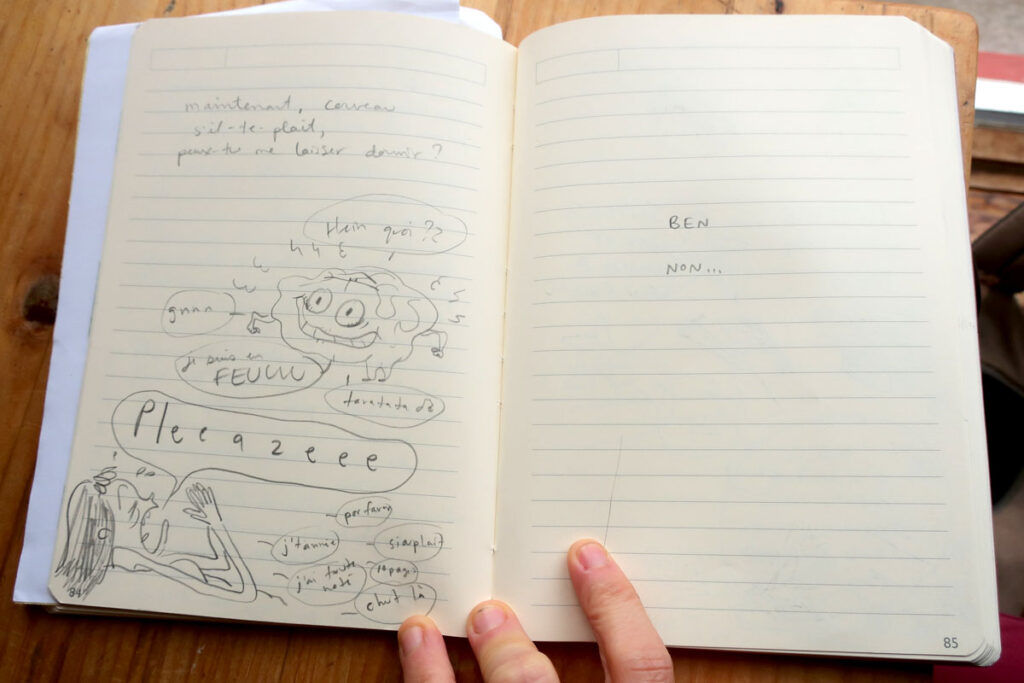 maintenant, cerveau
s'il-te-plait,
peux-tu me laisser dormir ?
Hein quoi ??
gnnn
je suis en
FEUUU
taratata dz
Pleeazeee
por favor
j't'annie
siouplait
j'ai toute
noté
chut là
84
BEN
NON...
85